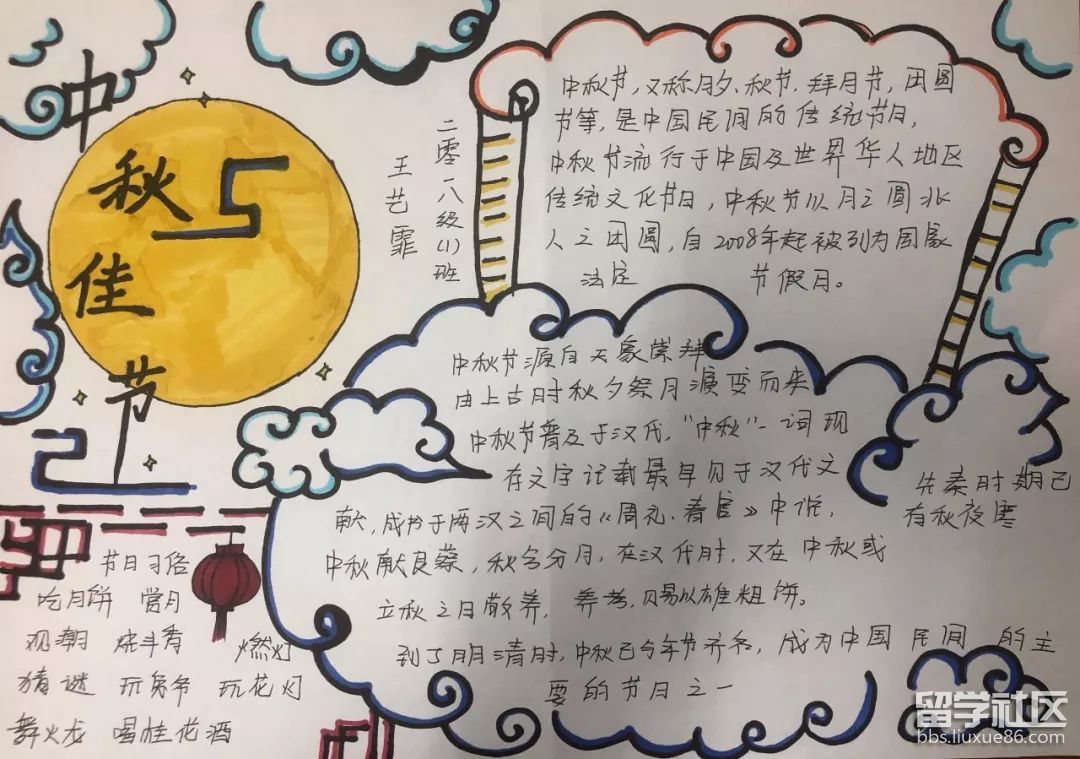 中
秋
佳
节
二零一八级(1)班
王艺霏
中秋节,又称月夕、秋节、拜月节,团圆
节等,是中国民间的传统节日,
中秋节流行于中国及世界华人地区
传统文化节日,中秋节以月之圆兆
人之团圆,自2008年起被列为国家
法定 节假日。
中秋节源自天象崇拜
由上古时秋夕祭月演变而来
中秋节普及于汉代,"中秋"一词现
存文字记载最早见于汉代文
献,成书于两汉之间的《周礼、春官》中说,
先秦时期已
有秋夜寒
中秋献良裘,秋分月,在汉代时,又在中秋或
立秋之日敬养,养老,赐以雄粗饼。
到了明清时,中秋已今年节齐名,成为中国民间的主
要的节日之一
节日习俗
吃月饼 赏月
观潮 烧斗香 燃灯
猜谜 玩兔爷 玩花灯
舞火龙 喝桂花酒
留学社区
bbs.liuxue86.com